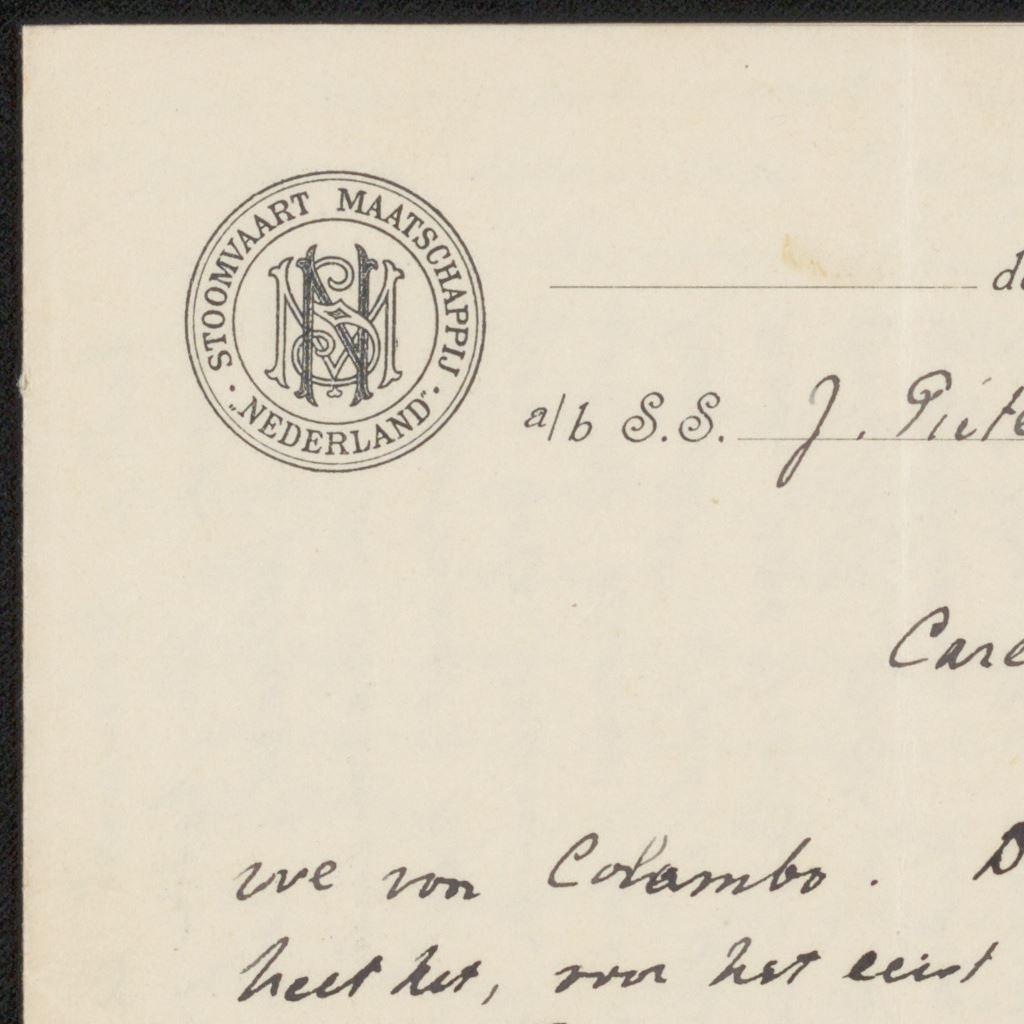 STOOMVAART MAATSCHAPPIJ
„NEDERLAND”
a/b S.S. J. Piete
Care
we von Colambo. D
heet het, voor het eerst